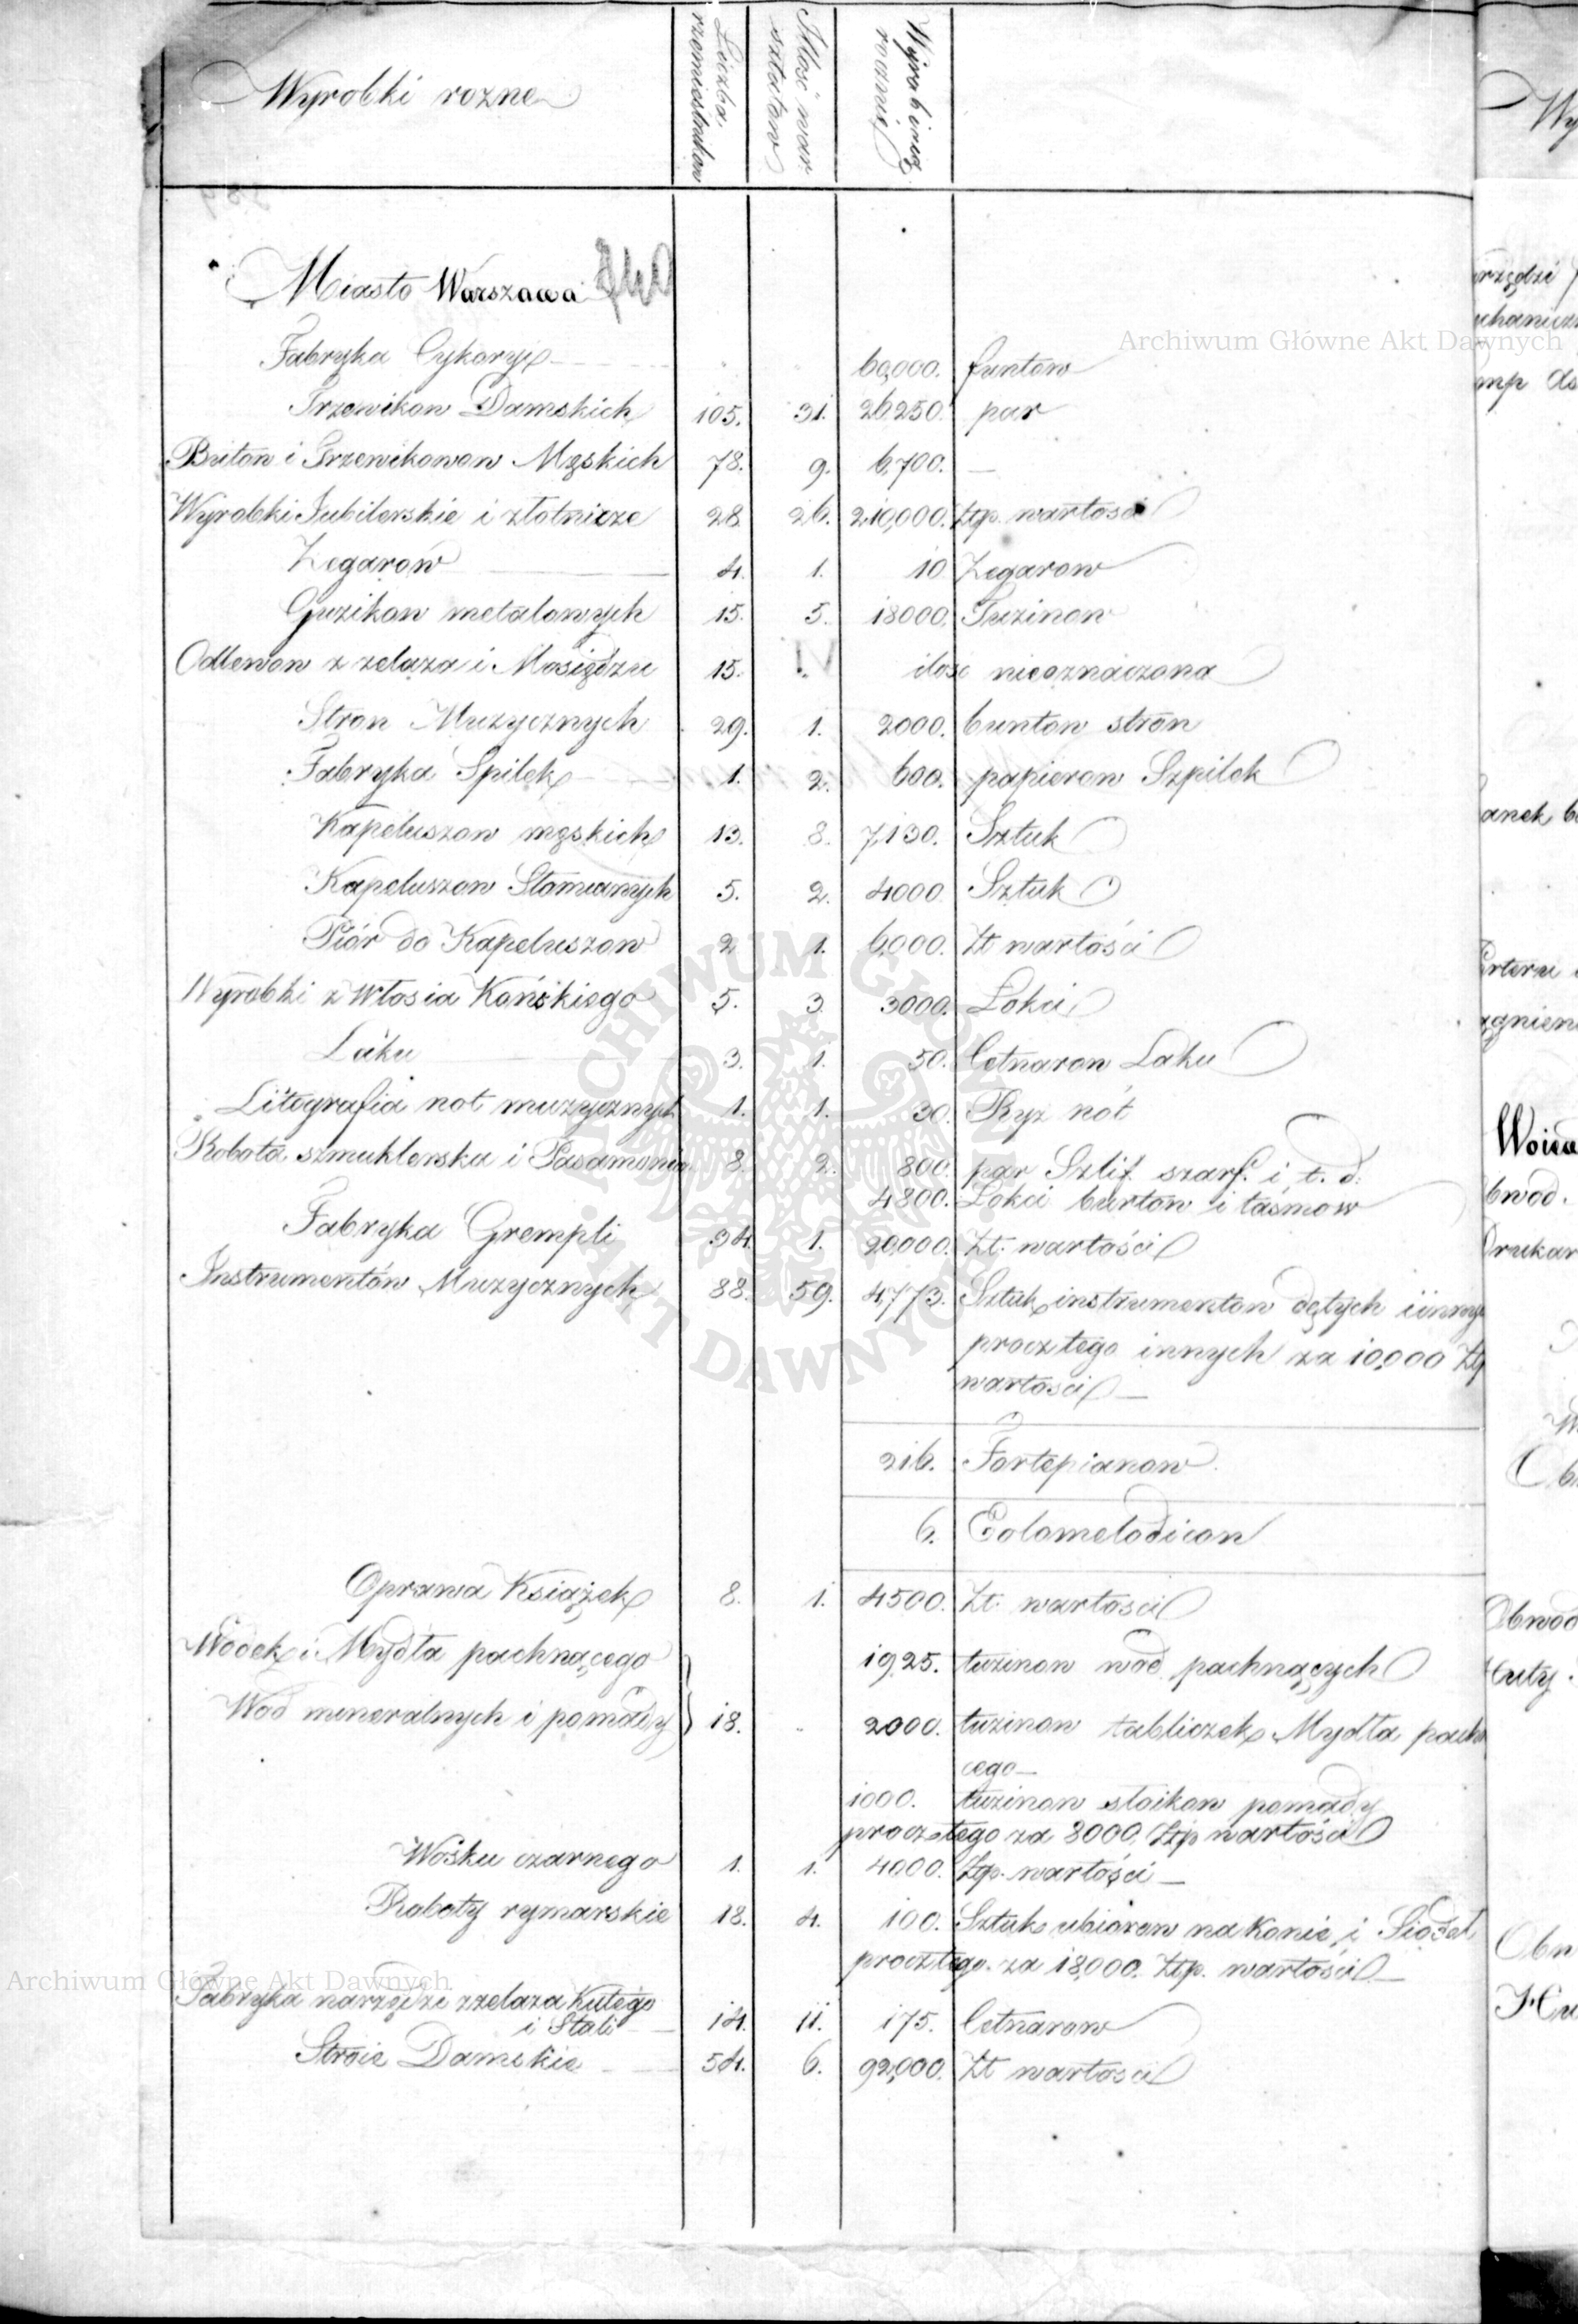 Wyrobki rozne
Liczba rzemieslnikow
Ilość warsztatow
Wyrabiaią rocznie
Miasto Warszawa
Fabryka Cykoryi 60,000. funtow
Trzewikow Damskich 105. 31. 26,250. par
Butow i Trzewikowow Męskich 78. 9. 6,700. —
Wyrobki Jubilerskie i złotnicze 28. 26. 210,000. Złp. wartosci
Zegarow 4. 1. 10 Zegarow
Guzikow metalowych 15. 5. 18000. Tuzinow
Odlewow z zelaza i Mosiędzu 15. ilosc nieoznaczona
Stron Muzycznych 29. 1. 2000. buntow stron
Fabryka Spilek 1. 2. 600. papierow Szpilek
Kapeluszow męskich 13. 8. 7,130. Sztuk
Kapeluszow Słomianych 5. 2. 4000 Sztuk
Piór do Kapeluszow 2 1. 6,000. Zł wartości
Wyrobki z Włosia Końskiego 5. 3 3000. Łokci
Laku 3. 1. 50. Cetnarow Laku
Litografia not muzycznych 1. 1. 30. Ryz nót
Robota szmuklerska i Pasamonin 8. 2. 800. par Szlif szarf. i t. d.
4800. Łokci burtow i taśmow
Fabryka Grempli 34. 1. 20,000. Zł. wartości
Instrumentów Muzycznych 88. 59. 4,773. Sztuk instrumentow dętych i innyc
procz tego innych za 10,000 Zł
wartosci —
216. Fortepianow
6. Eolomelodicon
Oprawa Ksiażek 8. 1. 4500. Zł. wartosci
Wodek i Mydła pachnącego 1925. tuzinow wod pachnących
Wod mineralnych i pomady 18. 2000. tuzinow tabliczek Mydła pachn
cego —
1000. tuzinow słoikow pomady
procz tego za 8000. Złp wartości
Wosku czarnego 1. 1. 4000. Złp. wartości —
Roboty rymarskie 18. 4. 100. Sztuk ubiorow na Konie i Siodeł
procz tego za 18,000. Złp. wartosci —
Fabryka narzędzi z zelaza Kutego
i Stali 14. 11. 175. Cetnarow
Stroie Damskie 54. 6. 92,000. Zł wartosci
Archiwum Główne Akt Dawnych
Archiwum Główne Akt Dawnych
ARCHIWUM GŁÓWNE AKT DAWNYCH